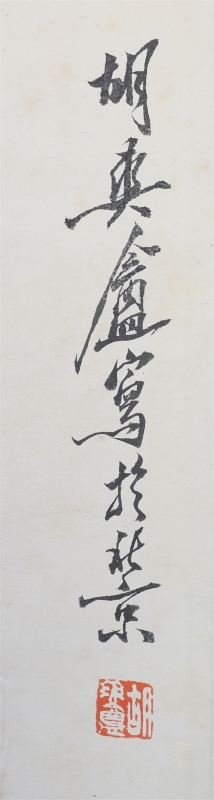 胡爽盦寫於北京
胡